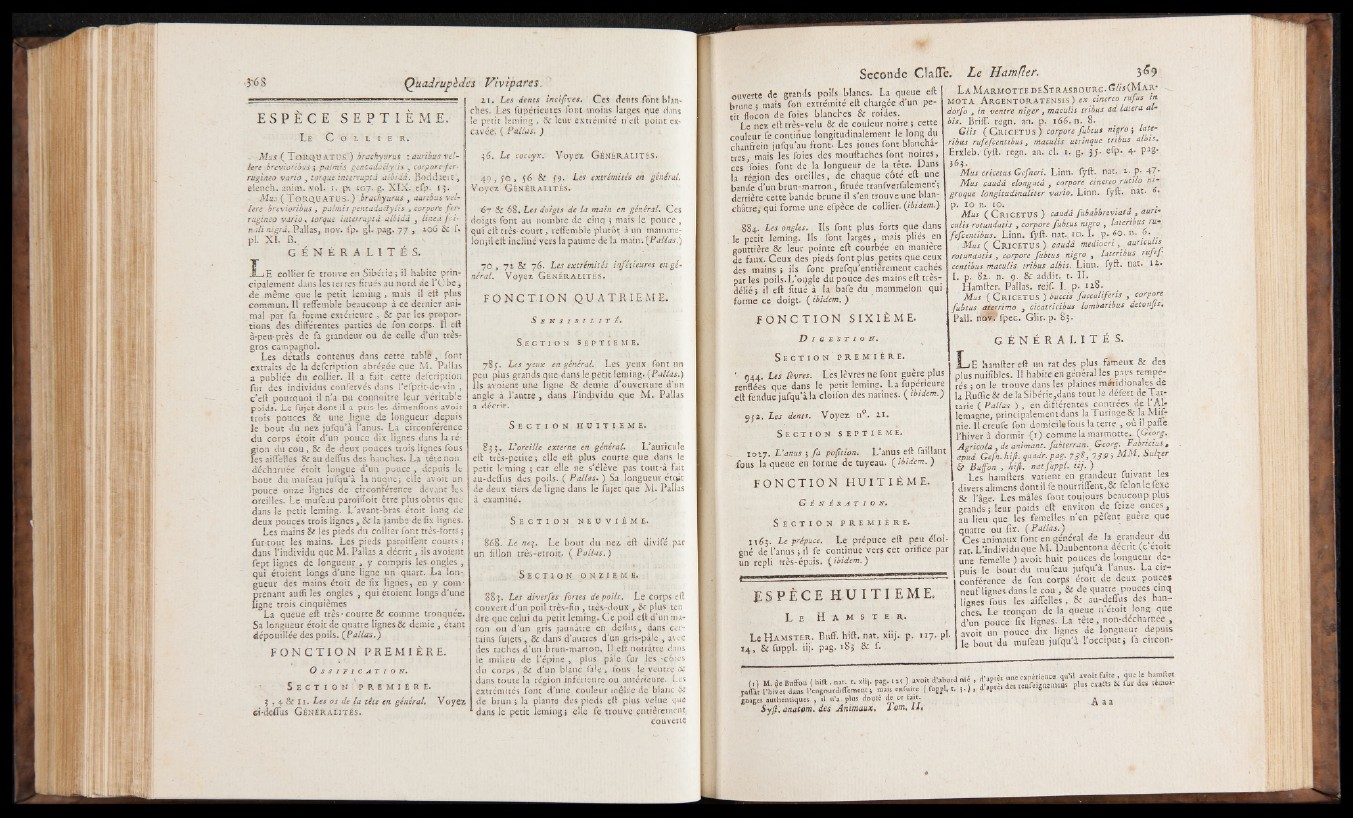 368 Quadrupèdes Vivipares.
ESPÈCE SEPTIÈME.
LE COLLIER.
Mus (TORQUATUS) brachyurus : auribus vel-
lere brevioribus ; palmis pentadactylis , corpore fer-
rugineo vario , torque interruptâ albidâ. Boddaert,
elench. anim. vol. 1. p. 107. g. XIX. esp. 13.
Mus (TORQUATUS.) brachyurus , auribus vel-
lere brevioribus , palmis pentadactylis , corpore fer-
rugineo vario, torque interruptâ albidâ , lineâ spi-
nali nigrâ. Pallas, nov. sp. gl. pag. 77 , 206 & s.
pl. XI. B.
GÉNÉRALITÉS.
LE collier se trouve en Sibérie ; il habite prin-
cipalement dans les terres situés au nord de l'Obe,
de même que le petit leming , mais il est plus
commun. Il ressemble beaucoup à ce dernier ani-
mal par sa forme extérieure , & par les propor-
tions des différentes parties de son corps. Il est
à-peu-près de sa grandeur ou de celle d'un très-
gros campagnol.
Les détails contenus dans cette table , sont
extraits de la description abrégée que M. Pallas
a publiée du collier. Il a fait cette description
sur des individus conservés dans l'esprit-de-vin ,
c'est pourquoi il n'a pu connoître leur véritable
poids. Le sujet dont il a pris les dimensions avoit
trois pouces & une ligne de longueur depuis
le bout du nez jusqu'à l'anus. La circonférence
du corps étoit d'un pouce dix lignes dans la ré-
gion du cou , & de deux pouces trois lignes sous
les aisselles & au-dessus des hanches. La tête non-
décharnée étoit longue d'un pouce , depuis le
bout du museau jusqu'à la nuque ; elle avoit un
pouce onze lignes de circonférence devant les
oreilles. Le museau paroissoit être plus obtus que
dans le petit leming. L'avant-bras étoit long de
deux pouces trois lignes , & la jambe de six lignes.
Les mains & les pieds du collier sont très-forts ;
sur-tout les mains. Les pieds paroissent courts ;
dans l'individu que M. Pallas a décrit , ils avoient
sept lignes de longueur , y compris les ongles ,
qui étoient longs d'une ligne un quart. La lon-
gueur des mains étoit de six lignes, en y com-
prenant aussi les ongles , qui étoient longs d'une
ligne trois cinquièmes
La queue est très-courte & comme tronquée.
Sa longueur étoit de quatre lignes & demie , étant
dépouillée des poils. (Pallas.)
FONCTION PREMIÈRE.
OSSIFICATION.
SECTION PREMIERE.
3 , 4 & 11. Les os de la tête en général. Voyez
ci-dessus GÉNÉRALITÉS.
21. Les dents incisives. Ces dents sont blan-
ches. Les supérieures sont moins larges que dans
le petit leming , & leur extrémité n'est point ex-
cavée. ( Pallas. )
36. Le coccyx. Voyez GÉNÉRALITÉS.
40 , 50 , 56 & 59. Les extrémités en général.
Voyez GÉNÉRALITÉS.
67 & 68. Les doigts de la main en général. Ces
doigts sont au nombre de cinq ; mais le pouce ,
qui est très-court , ressemble plutôt à un mamme-
lon ; il est incliné vers la paume de la main. (Pallas.)
70 , 72 & 76. Les extrémités inférieures en gé-
néral. Voyez GÉNÉRALITÉS.
FONCTION QUATRIEME.
SENSIBILITÉ.
SECTION SEPTIEME.
785. Les yeux en général. Les yeux sont un
peu plus grands que dans le petit leming. (Pallas.)
Ils avoient une ligne & demie d'ouverture d'un
angle à l'autre , dans l'individu que M. Pallas
a décrit.
SECTION HUITIEME.
833. L'oreille externe en général. L'auricule
est très-petite ; elle est plus courte que dans le
petit leming ; car elle ne s'élève pas tout-à fait
au-dessus des poils. ( Pallas. ) Sa longueur étoit
de deux tiers de ligne dans le sujet que M. Pallas
a examiné.
SECTION NEUVIÈME.
868. Le nez. Le bout du nez est divisé par
un sillon très-étroit. ( Pallas. )
SECTION ONZIEME.
883. Les diverses sortes de poils. Le corps est
couvert d'un poil très-fin , très-doux , & plus ten
dre que celui du petit leming. Ce poil est d'un ma-
ron ou d'un gris jaunâtre en dessus , dans cer-
tains sujets , & dans d'autres d'un gris-pâle , avec
des taches d'un brun-marron. Il est noirâtre dans
le milieu de l'épine , plus pâle sur les côtés
du corps , & d'un blanc sale , sous le ventre &
dans toute la région inférieure ou antérieure. Les
extrémités sont d'une couleur mêlée de blanc &
de brun ; la plante des pieds est plus velue que
dans le petit leming ; elle se trouve entièrement
couverte
Seconde Classe. Le Hamster. 369
ouverte de grands poils blancs. La queue est
brune ; mais son extrémité est chargée d'un pe-
tit flocon de soies blanches & roides.
Le nez est très-velu & de couleur noire ; cette
couleur se continue longitudinalement le long du
chanfrein jusqu'au front. Les joues sont blanchâ-
tres, mais les soies des moustaches sont noires,
ces soies sont de la longueur de la tête. Dans
la région des oreilles, de chaque côté est une
bande d'un brun-marron , située transversalement ;
derrière cette bande brune il s'en trouve une blan-
châtre, qui forme une espèce de collier. (ibidem.)
884. Les ongles. Ils sont plus forts que dans
le petit leming. Ils sont larges , mais pliés en
gouttière & leur pointe est courbée en manière
de faux. Ceux des pieds sont plus petits que ceux
des mains ; ils sont presqu'entièrement cachés
par les poils. L'ongle du pouce des mains est très-
délié ; il est situé à la base du mammelon qui
forme ce doigt. ( ibidem. )
FONCTION SIXIÈME.
DIGESTION.
SECTION PREMIÈRE.
944. Les lèvres. Les lèvres ne sont guère plus
renflées que dans le petit leming. La supérieure
est fendue jusqu'à la cloison des narines. ( ibidem.)
952. Les dents. Voyez n°. 21.
SECTION SEPTIEME.
1017. L'anus ; sa position. L'anus est saillant
sous la queue en forme de tuyeau. ( ibidem. )
FONCTION HUITIÈME.
GÉNÉRATION.
SECTION PREMIERE.
1163. Le prépuce. Le prépuce est peu éloi-
gné de l'anus ; il se continue vers cet orifice par
un repli très-épais. ( ibidem. )
ESPÈCE HUITIEME.
LE HAMSTER.
LE HAMSTER. Buff. hist. nat. xiij. p. 117. pl.
14, & suppl. iij. pag. 183 & s.
LA MARMOTTE DE STRASBOURG. Glis (MAR-
MOTA ARGENTORATENSIS) ex cinereo rufus in
dorso , in ventre niger , maculis tribus ad latera al-
bis. Briss. regn. an. p. 166. n. 8.
Glis ( CRICETUS ) corpore subtus nigro ; late-
ribus rufescentibus , maculis utrinque tribus albis.
Erxleb. syst. regn. an. cl. 1. g. 35. esp. 4. pag.
363.
Mus cricetus Gesneri. Linn. syst. nat. 2. p. 47.
Mus caudâ elongatâ , corpore cinereo rutilo ni-
groque longitudinaliter vario. Linn. syst. nat. 6.
p. 10 n. 10.
Mus ( CRICETUS ) caudâ subabbreviatâ , auri-
culis rotundatis , corpore subtus nigro , lateribus ru-
fescentibus. Linn. syst. nat. 10. I. p. 60. n. 6.
Mus ( CRICETUS ) caudâ mediocri , auriculis
rotundatis , corpore subtus nigro , lateribus rufes-
centibus maculis tribus albis. Linn. syst. nat. 12.
I. p. 82. n. 9. & addit. t. II.
Hamster. Pallas. reis. I. p. 128.
Mus ( CRICETUS ) buccis sacculiferis , corpore
subtus aterrimo , cicatricibus lombaribus detonsis.
Pall. nov. spec. Glir. p. 83.
GÉNÉRALITÉS.
LE hamster est un rat des plus fameux & des
plus nuisibles. Il habite en général les pays tempé-
rés ; on le trouve dans les plaines méridionales de
la Russie & de la Sibérie, dans tout le désert de Tar-
tarie ( Pallas ) , en différentes contrées de l'Al-
lemagne, principalement dans la Turinge & la Mis-
nie. Il creuse son domicile sous la terre , où il passe
l'hiver à dormir (1) comme la marmotte. (Georg.
Agricola , de animant. subterran. Georg. Fabricius ,
apud Gesn. hist. quadr. pag. 738, 739 ; MM. Sulzer
& Buffon , hist. nat. suppl. iij. )
Les hamsters varient en grandeur suivant les
divers alimens dont il se nourrissent, & selon le sexe
& l'âge. Les mâles sont toujours beaucoup plus
grands ; leur poids est environ de seize onces ,
au lieu que les femelles n'en pèsent guère que
quatre ou six. ( Pallas.)
Ces animaux sont en général de la grandeur du
rat. L'individu que M. Daubenton a décrit (c'étoit
une femelle ) avoit huit pouces de longueur de-
puis le bout du museau jusqu'à l'anus. La cir-
conférence de son corps étoit de deux pouces
neuf lignes dans le cou , & de quatre pouces cinq
lignes sous les aisselles , & au-dessus des han-
ches. Le tronçon de la queue n'étoit long que
d'un pouce six lignes. La tête , non-décharnée ,
avoit un pouce dix lignes de longueur depuis
le bout du museau jusqu'à l'occiput ; sa circon-
(1) M. de Buffon ( hist. nat. t. xiij. pag. 125 ) avoit d'abord nié , d'après une expérience qu'il avoit faite , que le hamster
passât l'hiver dans l'engourdissement ; mais ensuite ( suppl. t. 3. ) , d'après des renseignemens plus exacts & sur des témoi-
gnages authentiques , il n'a plus douté de ce fait.
Syst. anatom. des Animaux. Tom. II. A a a